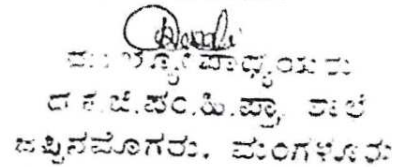 ಮುಖ್ಯೋಪಾಧ್ಯಾಯರು
ದ.ಕ.ಜಿ.ಪಂ.ಹಿ.ಪ್ರಾ. ಶಾಲೆ
ಜಪ್ಪಿನಮೊಗರು, ಮಂಗಳೂರು